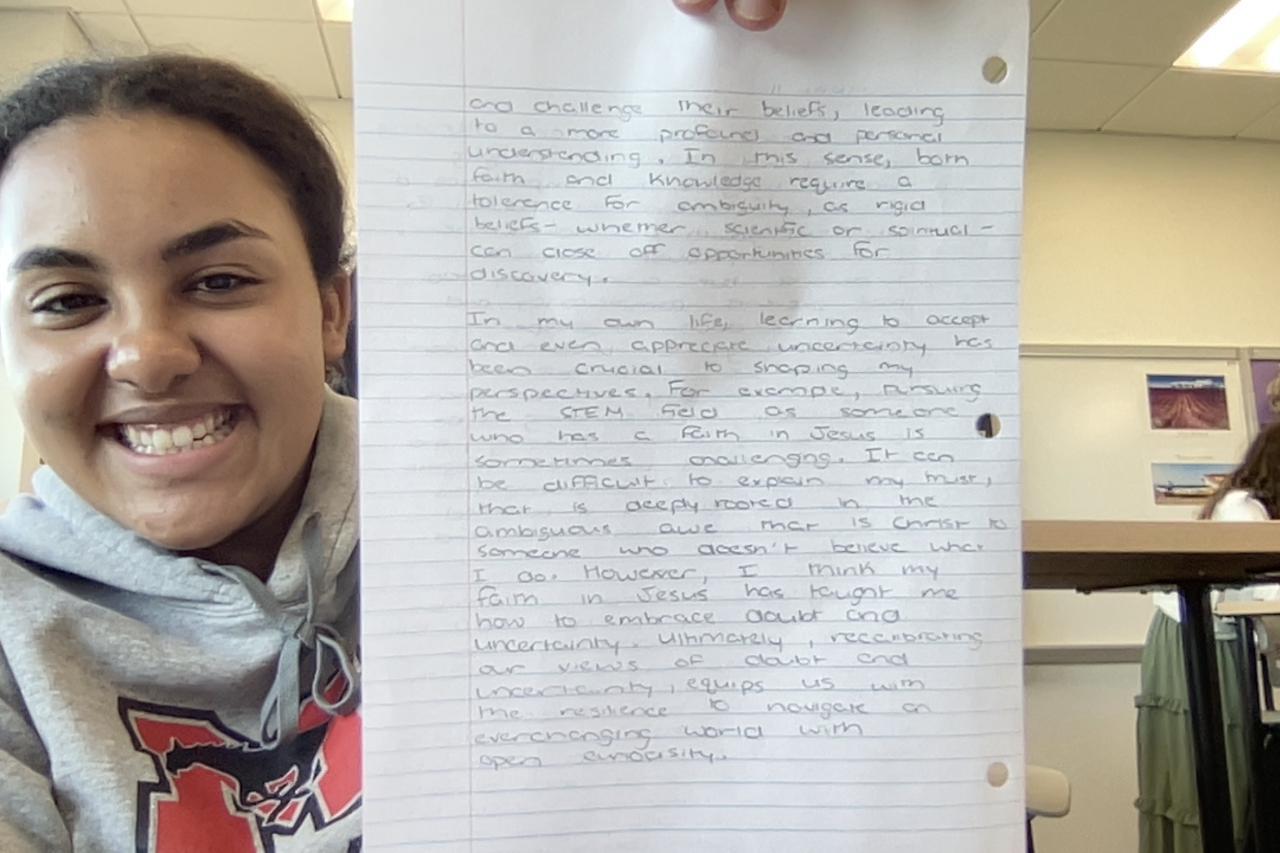 and challenge their beliefs, leading
to a more profound and personal
understanding. In this sense, both
faith and knowledge require a
tolerence for ambiguity, as rigid
beliefs - whether scientific or spiritual -
can close off opportunities for
discovery.
In my own life, learning to accept
and even appreciate uncertainty has
been crucial to shaping my
perspectives. For example, pursuing
the STEM field as someone
who has a faith in Jesus is
sometimes challenging. It can
be difficult to explain my trust,
that is deeply rooted in the
ambiguous awe that is Christ to
someone who doesn't believe what
I do. However, I think my
faith in Jesus has taught me
how to embrace doubt and
uncertainty. Ultimately, recalibrating
our views of doubt and
uncertainty, equips us with
the resilience to navigate an
everchanging world with
open curiosity.